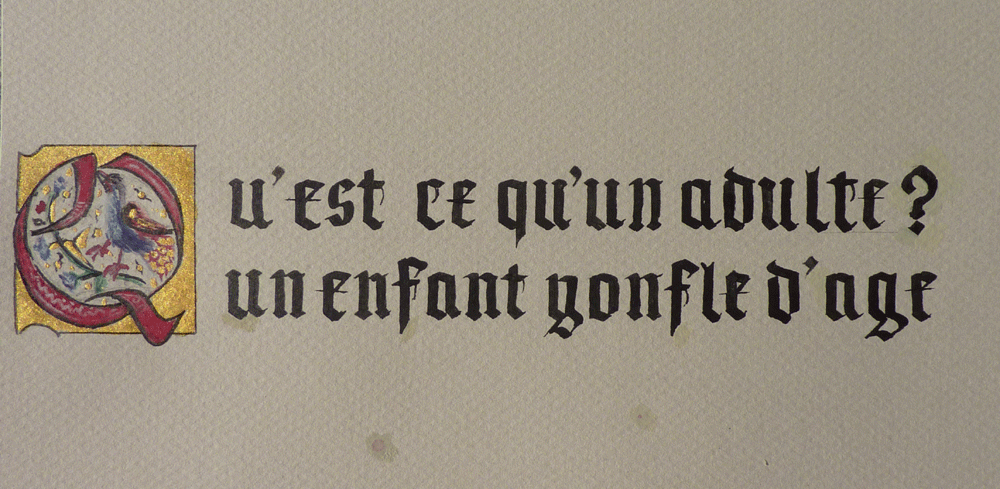 Qu'est ce qu'un adulte ?
un enfant gonfle d'age